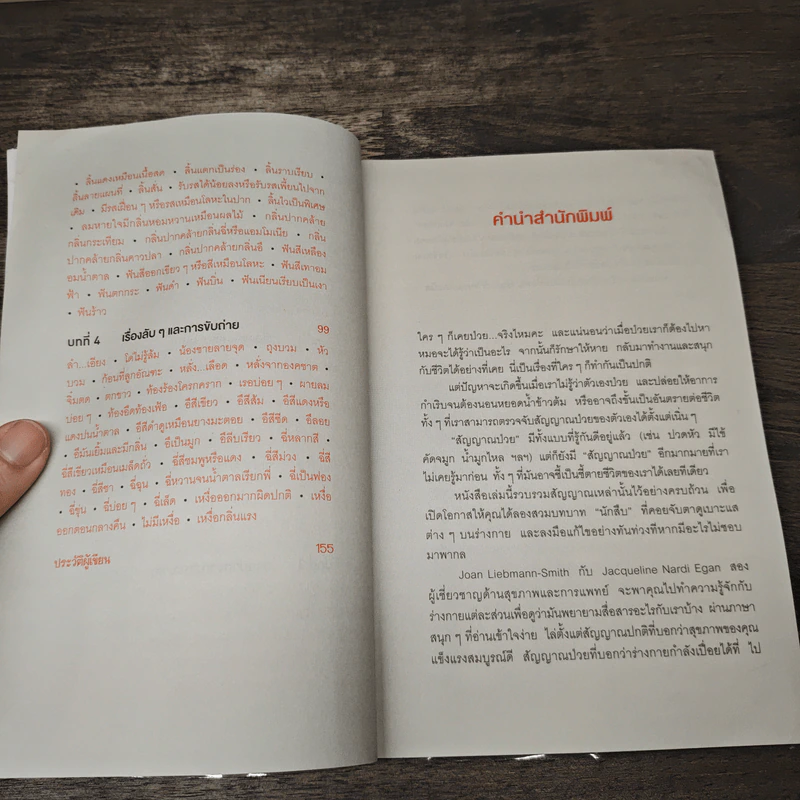 • ลิ้นแดงเหมือนเนื้อสด • ลิ้นแตกเป็นร่อง • ลิ้นราบเรียบ •
ลิ้นลายแผนที่ • ลิ้นสั่น • รับรสได้น้อยลงหรือรับรสเพี้ยนไปจาก
เดิม • มีรสเฝื่อน ๆ หรือรสเหมือนโลหะในปาก • ลิ้นไวเป็นพิเศษ
• ลมหายใจมีกลิ่นหอมหวานเหมือนผลไม้ • กลิ่นปากคล้าย
กลิ่นกระเทียม • กลิ่นปากคล้ายกลิ่นฉี่หรือแอมโมเนีย • กลิ่น
ปากคล้ายกลิ่นคาวปลา • กลิ่นปากคล้ายกลิ่นอึ • ฟันสีเหลือง
อมน้ำตาล • ฟันสีออกเขียว ๆ หรือสีเหมือนโลหะ • ฟันสีเทาอม
ฟ้า • ฟันตกกระ • ฟันดำ • ฟันบิ่น • ฟันเนียนเรียบเป็นเงา
• ฟันร้าว
บทที่ 4 เรื่องลับ ๆ และการขับถ่าย 99
ลำ...เอียง • โด่ไม่รู้ล้ม • น้องชายลายจุด • ถุงบวม • หัว
บวม • ก้อนที่ลูกอัณฑะ • หลั่ง...เลือด • หลั่งจากองคชาต •
จิ๋มตด • ตกขาว • ท้องร้องโครกคราก • เรอบ่อย ๆ • ผายลม
บ่อย ๆ • ท้องอืดท้องเฟ้อ • อึสีเขียว • อึสีส้ม • อึสีแดงหรือ
แดงปนน้ำตาล • อึสีดำดูเหนียวยางมะตอย • อึสีซีด • อึลอย
• อึมันเยิ้มและมีกลิ่น • อึเป็นมูก • อึลีบเรียว • ฉี่หลากสี •
ฉี่สีเขียวเหมือนเมล็ดถั่ว • ฉี่สีชมพูหรือแดง • ฉี่สีม่วง • ฉี่สี
ทอง • ฉี่สีชา • ฉี่ฉุน • ฉี่หวานจนน้ำตาลเรียกพี่ • ฉี่เป็นฟอง
• ฉี่ขุ่น • ฉี่บ่อย ๆ • ฉี่เล็ด • เหงื่อออกมากผิดปกติ • เหงื่อ
ออกตอนกลางคืน • ไม่มีเหงื่อ • เหงื่อกลิ่นแรง
ประวัติผู้เขียน 155
คำนำสำนักพิมพ์
ใคร ๆ ก็เคยป่วย...จริงไหมคะ และแน่นอนว่าเมื่อป่วยเราก็ต้องไปหา
หมอจะได้รู้ว่าเป็นอะไร จากนั้นก็รักษาให้หาย กลับมาทำงานและสนุก
กับชีวิตได้อย่างที่เคย นี่เป็นเรื่องที่ใคร ๆ ก็ทำกันเป็นปกติ
แต่ปัญหาจะเกิดขึ้นเมื่อเราไม่รู้ว่าตัวเองป่วย และปล่อยให้อาการ
กำเริบจนต้องนอนหยอดน้ำข้าวต้ม หรืออาจถึงขั้นเป็นอันตรายต่อชีวิต
ทั้ง ๆ ที่เราสามารถตรวจจับสัญญาณป่วยของตัวเองได้ตั้งแต่เนิ่น ๆ
“สัญญาณป่วย” มีทั้งแบบที่รู้กันดีอยู่แล้ว (เช่น ปวดหัว มีไข้
คัดจมูก น้ำมูกไหล ฯลฯ) แต่ก็ยังมี “สัญญาณป่วย” อีกมากมายที่เรา
ไม่เคยรู้มาก่อน ทั้ง ๆ ที่มันอาจชี้เป็นชี้ตายชีวิตของเราได้เลยทีเดียว
หนังสือเล่มนี้รวบรวมสัญญาณเหล่านั้นไว้อย่างครบถ้วน เพื่อ
เปิดโอกาสให้คุณได้ลองสวมบทบาท “นักสืบ” ที่คอยจับตาดูเบาะแส
ต่าง ๆ บนร่างกาย และลงมือแก้ไขอย่างทันท่วงทีหากมีอะไรไม่ชอบ
มาพากล
Joan Liebmann-Smith กับ Jacqueline Nardi Egan สอง
ผู้เชี่ยวชาญด้านสุขภาพและการแพทย์ จะพาคุณไปทำความรู้จักกับ
ร่างกายแต่ละส่วนเพื่อดูว่ามันพยายามสื่อสารอะไรกับเราบ้าง ผ่านภาษา
สนุก ๆ ที่อ่านเข้าใจง่าย ไล่ตั้งแต่สัญญาณปกติที่บอกว่าสุขภาพของคุณ
แข็งแรงสมบูรณ์ดี สัญญาณป่วยที่บอกว่าร่างกายกำลังเปื่อยได้ที่ ไป